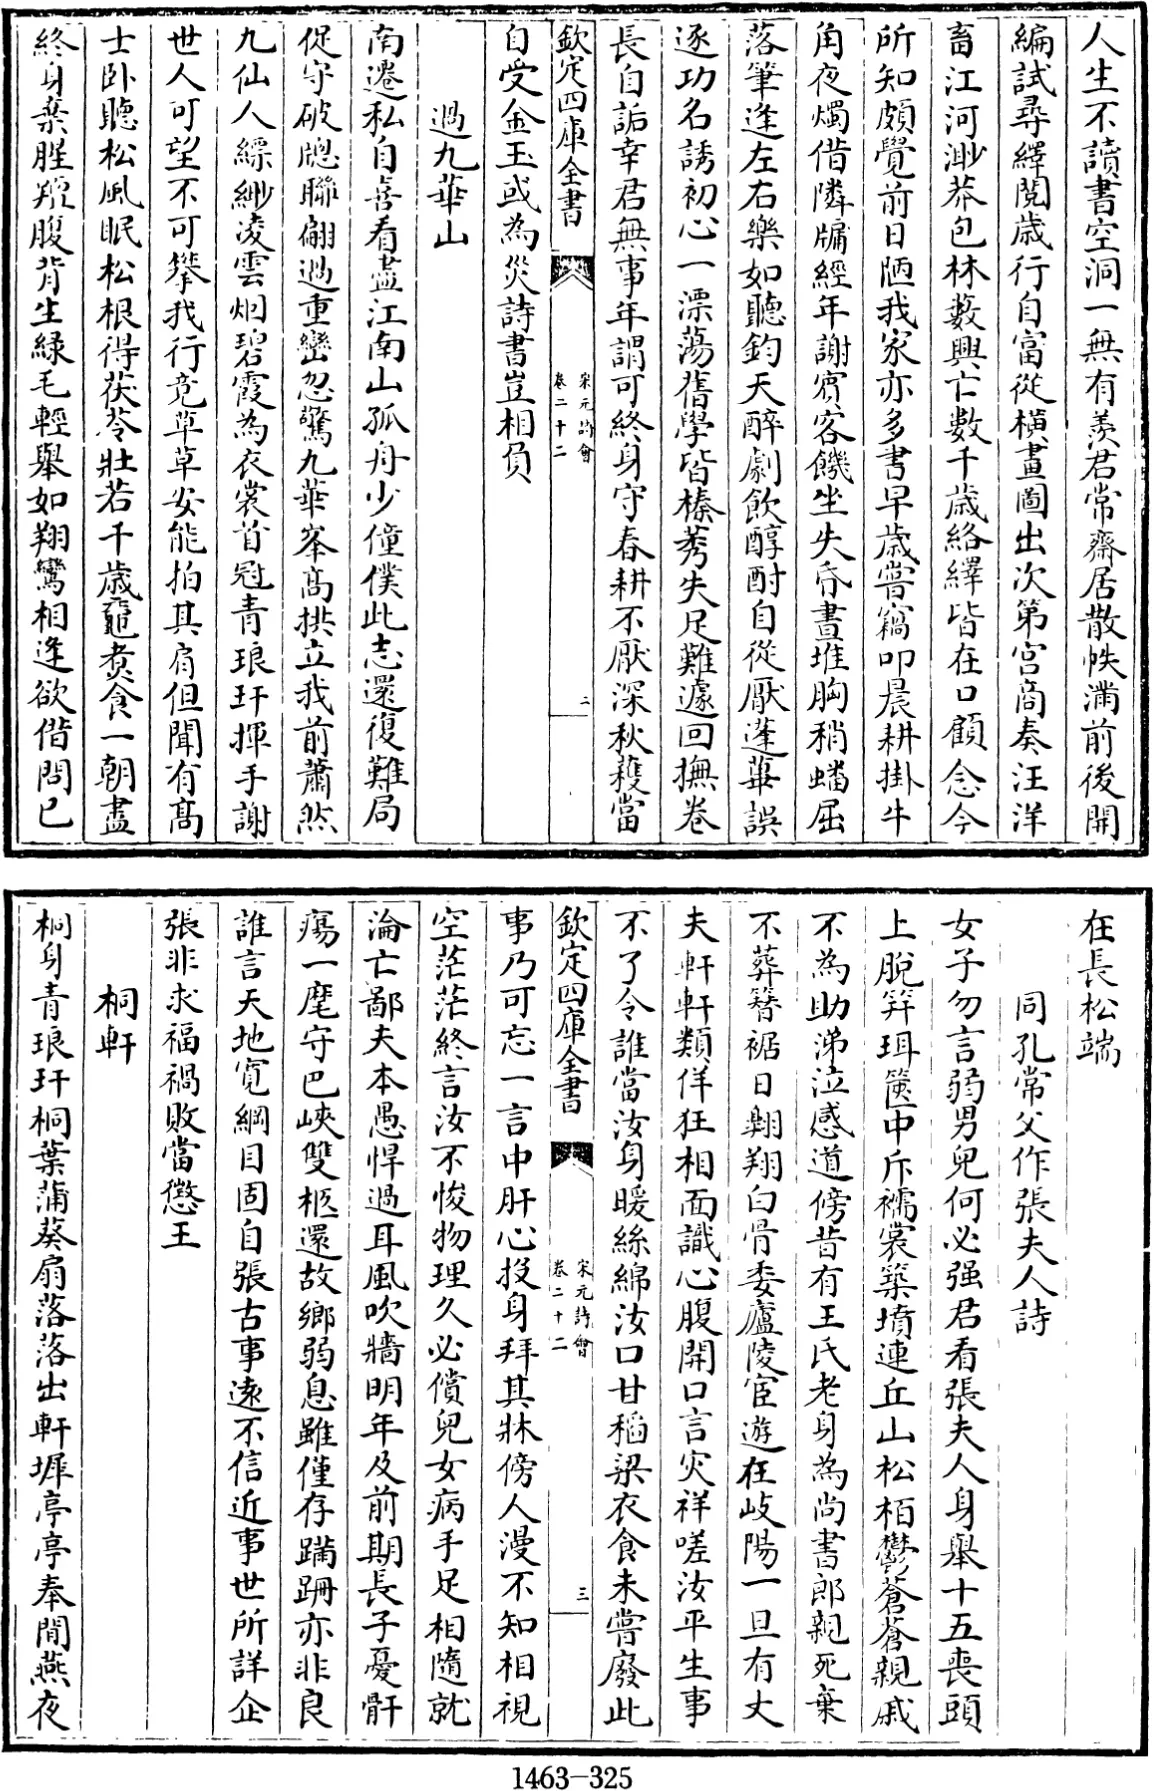 人生不讀書空洞一無有羨君常齋居散帙滿前後開
編試尋繹閱歲行自富從横畫圖出次第宫商奏汪洋
畜江河渺莽包林藪興亡數千歲絡繹皆在口顧念今
所知頗覺前日陋我家亦多書早歲嘗竊叩晨耕掛牛
角夜燭借隣牖經年謝賓客饑坐失昏晝堆胸稍蟠屈
落筆逢左右樂如聽鈞天醉劇飲醇酎自從厭蓬蓽誤
逐功名誘初心一漂蕩舊學皆榛莠失足難遽回撫卷
長自詬幸君無事年謂可終身守春耕不厭深秋穫當
欽定四庫全書
宋元詩會
卷二十二
二
自受金玉或為災詩書豈相負
過九華山
南遷私自喜看盡江南山孤舟少僮僕此志還復難局
促守破窻聯翩過重巒忽驚九華峯高拱立我前蕭然
九仙人縹緲凌雲烟碧霞為衣裳首冠青琅玕揮手謝
世人可望不可攀我行竟草草安能拍其肩但聞有高
士卧聽松風眠松根得茯苓壯若千歲黿煑食一朝盡
終身棄腥羶腹背生綠毛輕舉如翔鸞相逢欲借問已
在長松端
同孔常父作張夫人詩
女子勿言弱男兒何必强君看張夫人身舉十五喪頭
上脫筓珥篋中斥襦裳築墳連丘山松栢鬱蒼蒼親戚
不為助涕泣感道傍昔有王氏老身為尚書郎親死棄
不葬簪裾日翺翔白骨委廬陵宦遊在岐陽一旦有丈
夫軒軒類佯狂相面識心腹開口言災祥嗟汝平生事
不了令誰當汝身暖絲綿汝口甘稻粱衣食未嘗廢此
欽定四庫全書
宋元詩會
卷二十二
三
事乃可忘一言中肝心投身拜其牀傍人漫不知相視
空茫茫終言汝不悛物理久必償兒女病手足相隨就
淪亡鄙夫本愚悍過耳風吹牆明年及前期長子憂骭
瘍一麾守巴峽雙柩還故鄉弱息雖僅存蹣跚亦非良
誰言天地寛綱目固自張古事逺不信近事世所詳企
張非求福禍敗當懲王
桐軒
桐身青琅玕桐葉蒲葵扇落落出軒墀亭亭奉閒燕夜
1463-325